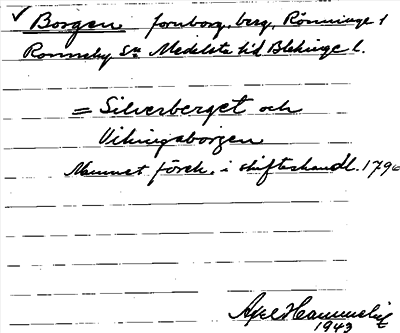 ✓ Borgen fornborg, berg, Rönninge 1
Ronneby Sn Medelsta hd Blekinge l.
= Silverberget och
Vikingaborgen
Namnet förek. i skifteshandl. 1790
Axel
1943